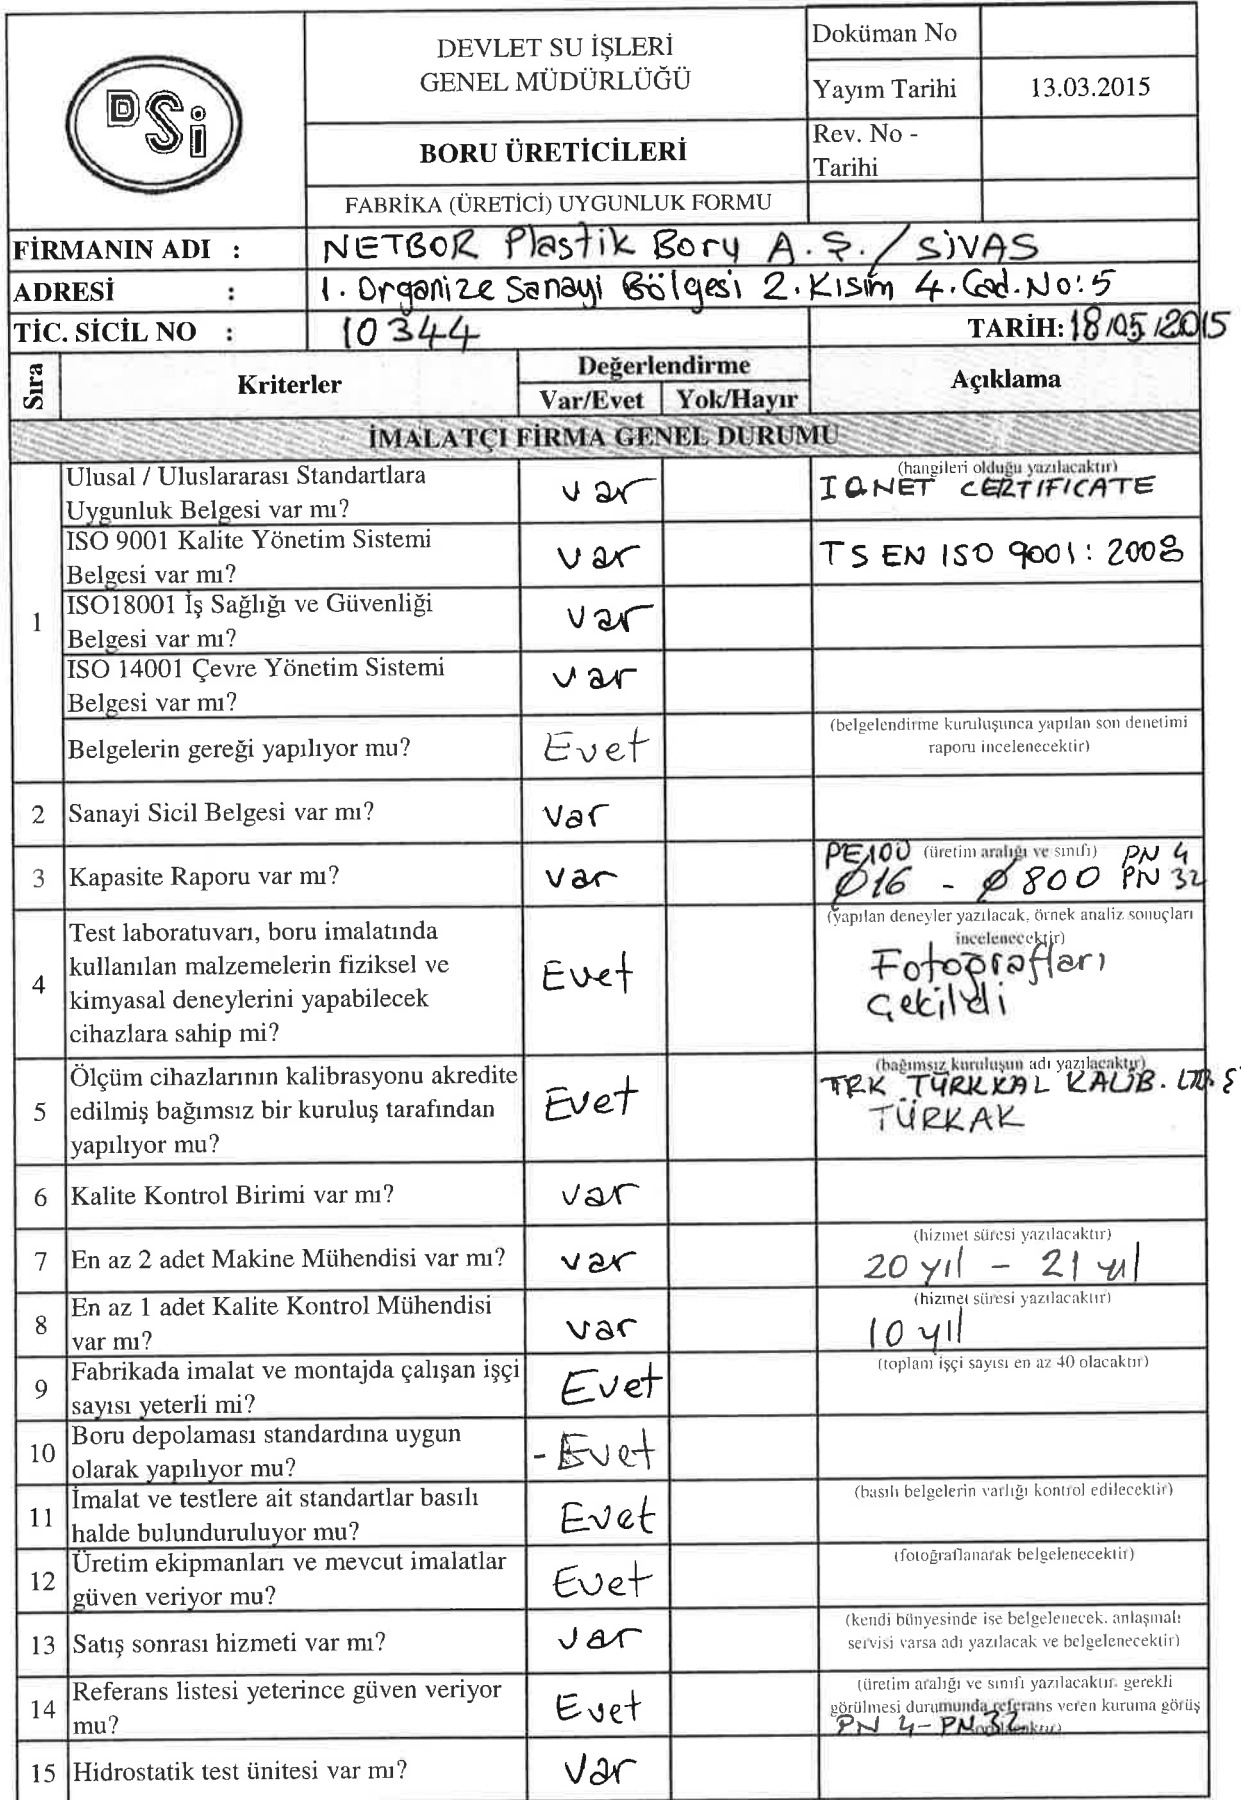 DSİ
DEVLET SU İŞLERİ
GENEL MÜDÜRLÜĞÜ
BORU ÜRETİCİLERİ
FABRİKA (ÜRETİCİ) UYGUNLUK FORMU
Doküman No
Yayım Tarihi 13.03.2015
Rev. No -
Tarihi
FİRMANIN ADI : NETBOR Plastik Boru A.Ş. / SİVAS
ADRESİ : 1. Organize Sanayi Bölgesi 2. Kısım 4. Cad. No: 5
TİC. SİCİL NO : 10344 TARİH: 18/05/2015
Sıra Kriterler Değerlendirme Açıklama
Var/Evet Yok/Hayır
İMALATÇI FİRMA GENEL DURUMU
1
Ulusal / Uluslararası Standartlara
Uygunluk Belgesi var mı?
var
(hangileri olduğu yazılacaktır)
IQNET CERTIFICATE
ISO 9001 Kalite Yönetim Sistemi
Belgesi var mı?
var
TS EN ISO 9001: 2008
ISO18001 İş Sağlığı ve Güvenliği
Belgesi var mı?
var
ISO 14001 Çevre Yönetim Sistemi
Belgesi var mı?
var
Belgelerin gereği yapılıyor mu? Evet
(belgelendirme kuruluşunca yapılan son denetimi
raporu incelenecektir)
2 Sanayi Sicil Belgesi var mı? var
3 Kapasite Raporu var mı? var
PE100 (üretim aralığı ve sınıfı) PN 4
Ø16 - Ø 800 PN 32
4
Test laboratuvarı, boru imalatında
kullanılan malzemelerin fiziksel ve
kimyasal deneylerini yapabilecek
cihazlara sahip mi?
Evet
(yapılan deneyler yazılacak, örnek analiz sonuçları
incelenecektir)
Fotoğrafları
çekildi
5
Ölçüm cihazlarının kalibrasyonu akredite
edilmiş bağımsız bir kuruluş tarafından
yapılıyor mu?
Evet
(bağımsız kuruluşun adı yazılacaktır)
TRK TÜRKKAL KALİB. LTD. Ş
TÜRKAK
6 Kalite Kontrol Birimi var mı? var
7 En az 2 adet Makine Mühendisi var mı? var
(hizmet süresi yazılacaktır)
20 yıl - 21 yıl
8
En az 1 adet Kalite Kontrol Mühendisi
var mı?
var
(hizmet süresi yazılacaktır)
10 yıl
9
Fabrikada imalat ve montajda çalışan işçi
sayısı yeterli mi?
Evet
(toplam işçi sayısı en az 40 olacaktır)
10
Boru depolaması standardına uygun
olarak yapılıyor mu?
- Evet
11
İmalat ve testlere ait standartlar basılı
halde bulunduruluyor mu?
Evet
(basılı belgelerin varlığı kontrol edilecektir)
12
Üretim ekipmanları ve mevcut imalatlar
güven veriyor mu?
Evet
(fotoğraflanarak belgelenecektir)
13 Satış sonrası hizmeti var mı? var
(kendi bünyesinde ise belgelenecek, anlaşmalı
servisi varsa adı yazılacak ve belgelenecektir)
14
Referans listesi yeterince güven veriyor
mu?
Evet
(üretim aralığı ve sınıfı yazılacaktır, gerekli
görülmesi durumunda referans veren kuruma görüş
PN 4 - PN 32
15 Hidrostatik test ünitesi var mı? var